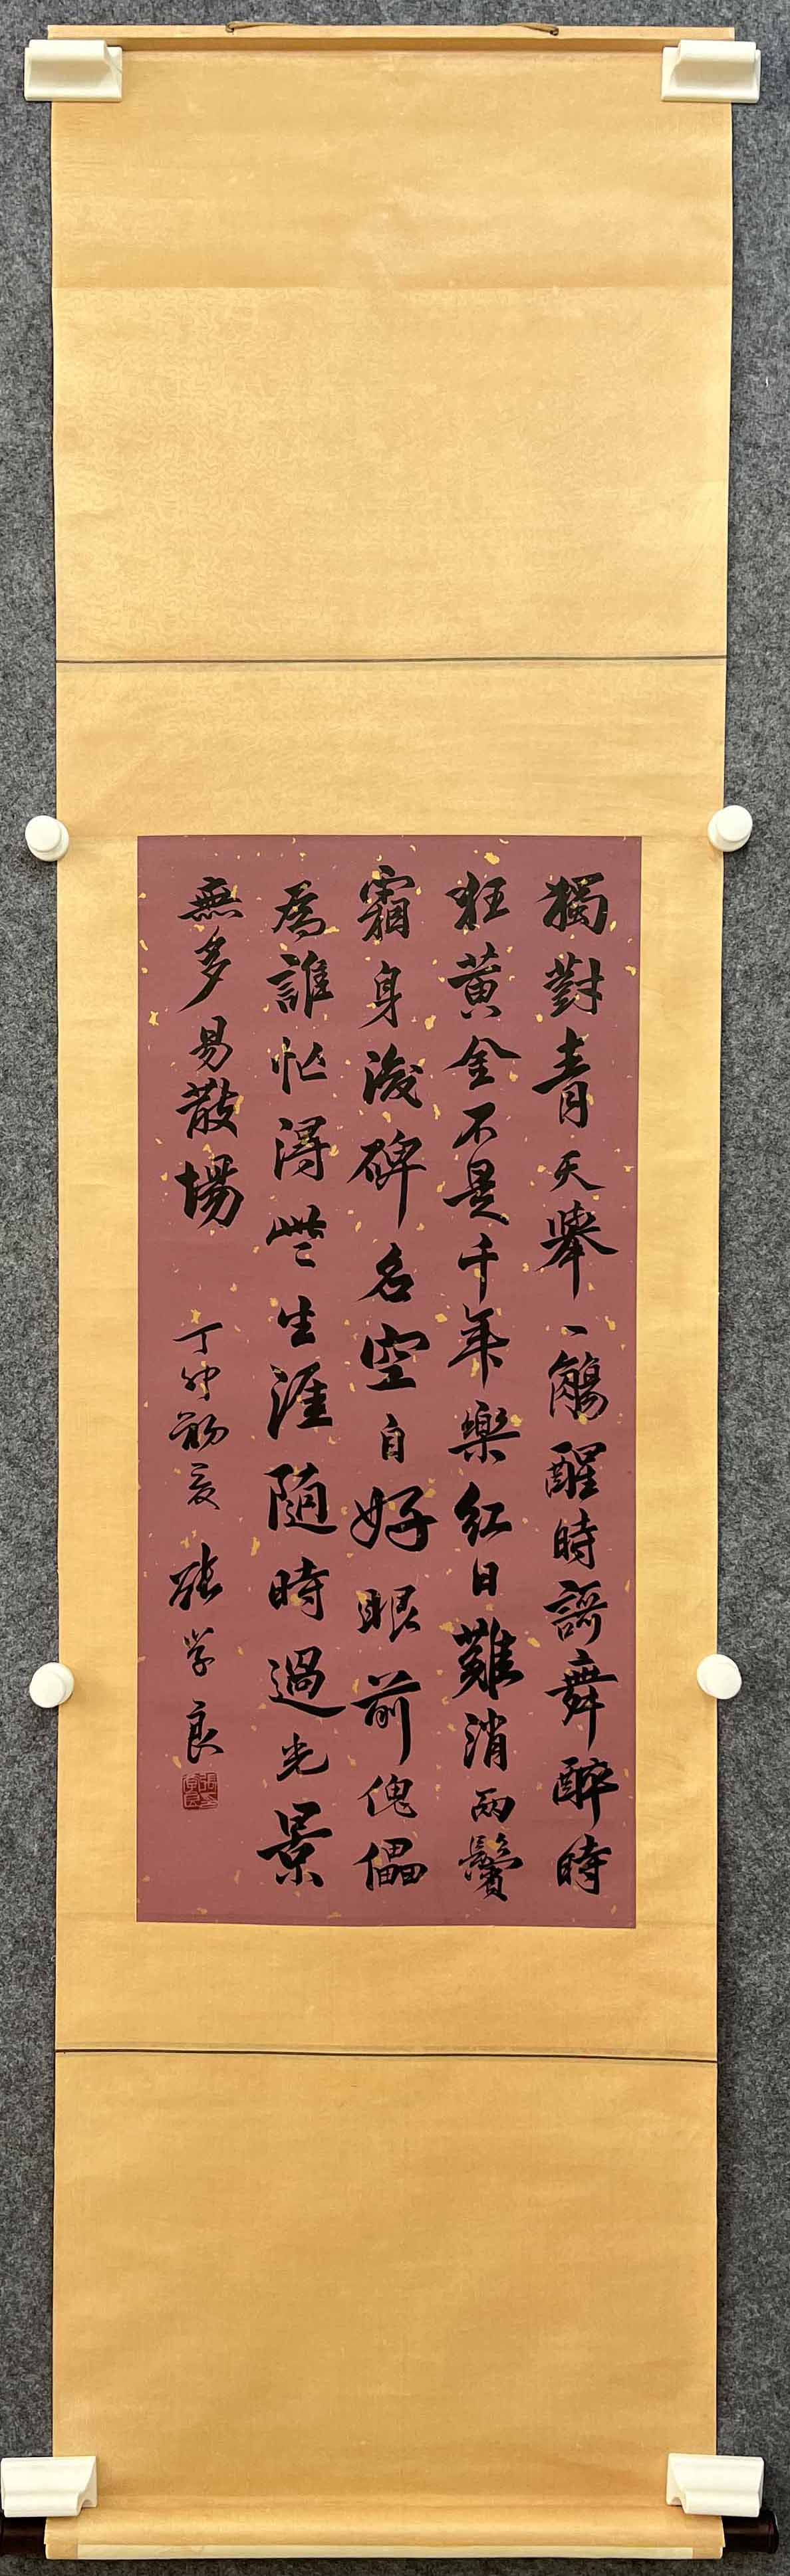 獨對青天舉一觴醒時謌舞醉時
狂黃金不是千年樂紅日難消兩鬢
霜身後碑名空自好眼前傀儡
為誰忙得些生涯隨時過光景
無多易散場
丁卯初夏 張学良